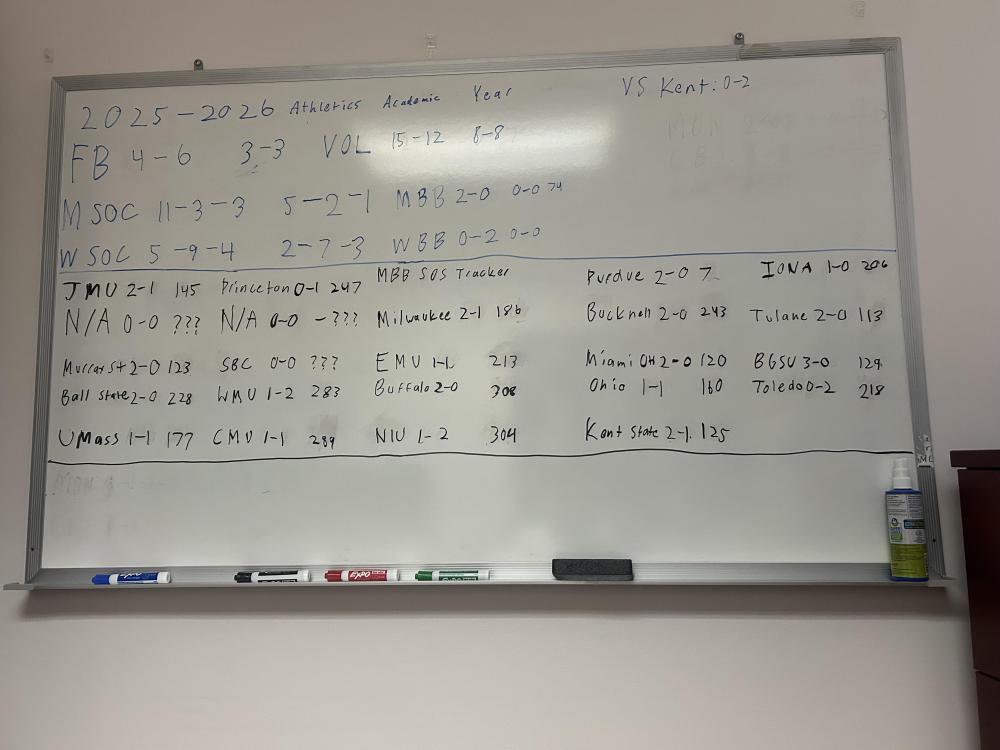 2025-2026 Athletics Academic Year VS Kent: 0-2
FB 4-6 3-3 VOL 15-12 8-8
M SOC 11-3-3 5-2-1 MBB 2-0 0-0 74
W SOC 5-9-4 2-7-3 WBB 0-2 0-0
MBB SOS Tracker
JMU 2-1 145 Princeton 0-1 247 Purdue 2-0 7 IONA 1-0 206
N/A 0-0 ??? N/A 0-0 -??? Milwaukee 2-1 186 Bucknell 2-0 243 Tulane 2-0 113
Murray St 2-0 123 SBC 0-0 ??? EMU 1-1 213 Miami OH 2-0 120 BGSU 3-0 129
Ball State 2-0 228 WMU 1-2 283 Buffalo 2-0 308 Ohio 1-1 160 Toledo 0-2 218
UMass 1-1 177 CMU 1-1 289 NIU 1-2 304 Kent State 2-1 125
EXPO